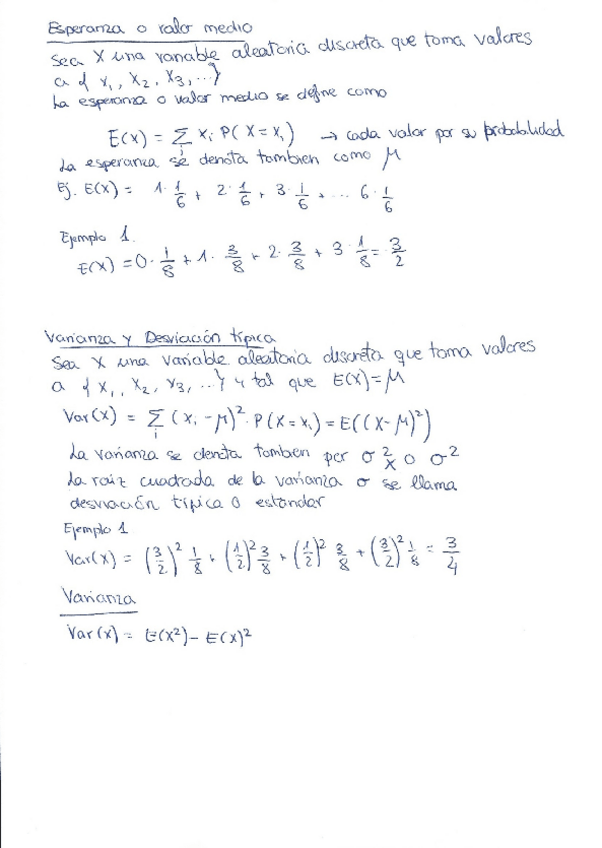 Esperanza o valor medio
Sea X una variable aleatoria discreta que toma valores
a { x₁, x₂, x₃, ...}
La esperanza o valor medio se define como
E(x) = Σᵢ xᵢ P(X = xᵢ) → cada valor por su probabilidad
La esperanza se denota tambien como μ
Ej. E(x) = 1·1/6 + 2·1/6 + 3·1/6 + ... 6·1/6
Ejemplo 1.
E(x) = 0·1/8 + 1·3/8 + 2·3/8 + 3·1/8 = 3/2
Varianza y Desviación típica
Sea X una variable aleatoria discreta que toma valores
a { x₁, x₂, x₃, ...} y tal que E(x) = μ
Var(x) = Σᵢ (xᵢ - μ)² · P(X = xᵢ) = E((X - μ)²)
La varianza se denota tambien por σ²ₓ o σ²
La raiz cuadrada de la varianza σ se llama
desviación típica o estandar
Ejemplo 1
Var(x) = (3/2)² 1/8 + (1/2)² 3/8 + (1/2)² 3/8 + (3/2)² 1/8 = 3/4
Varianza
Var(x) = E(x²) - E(x)²